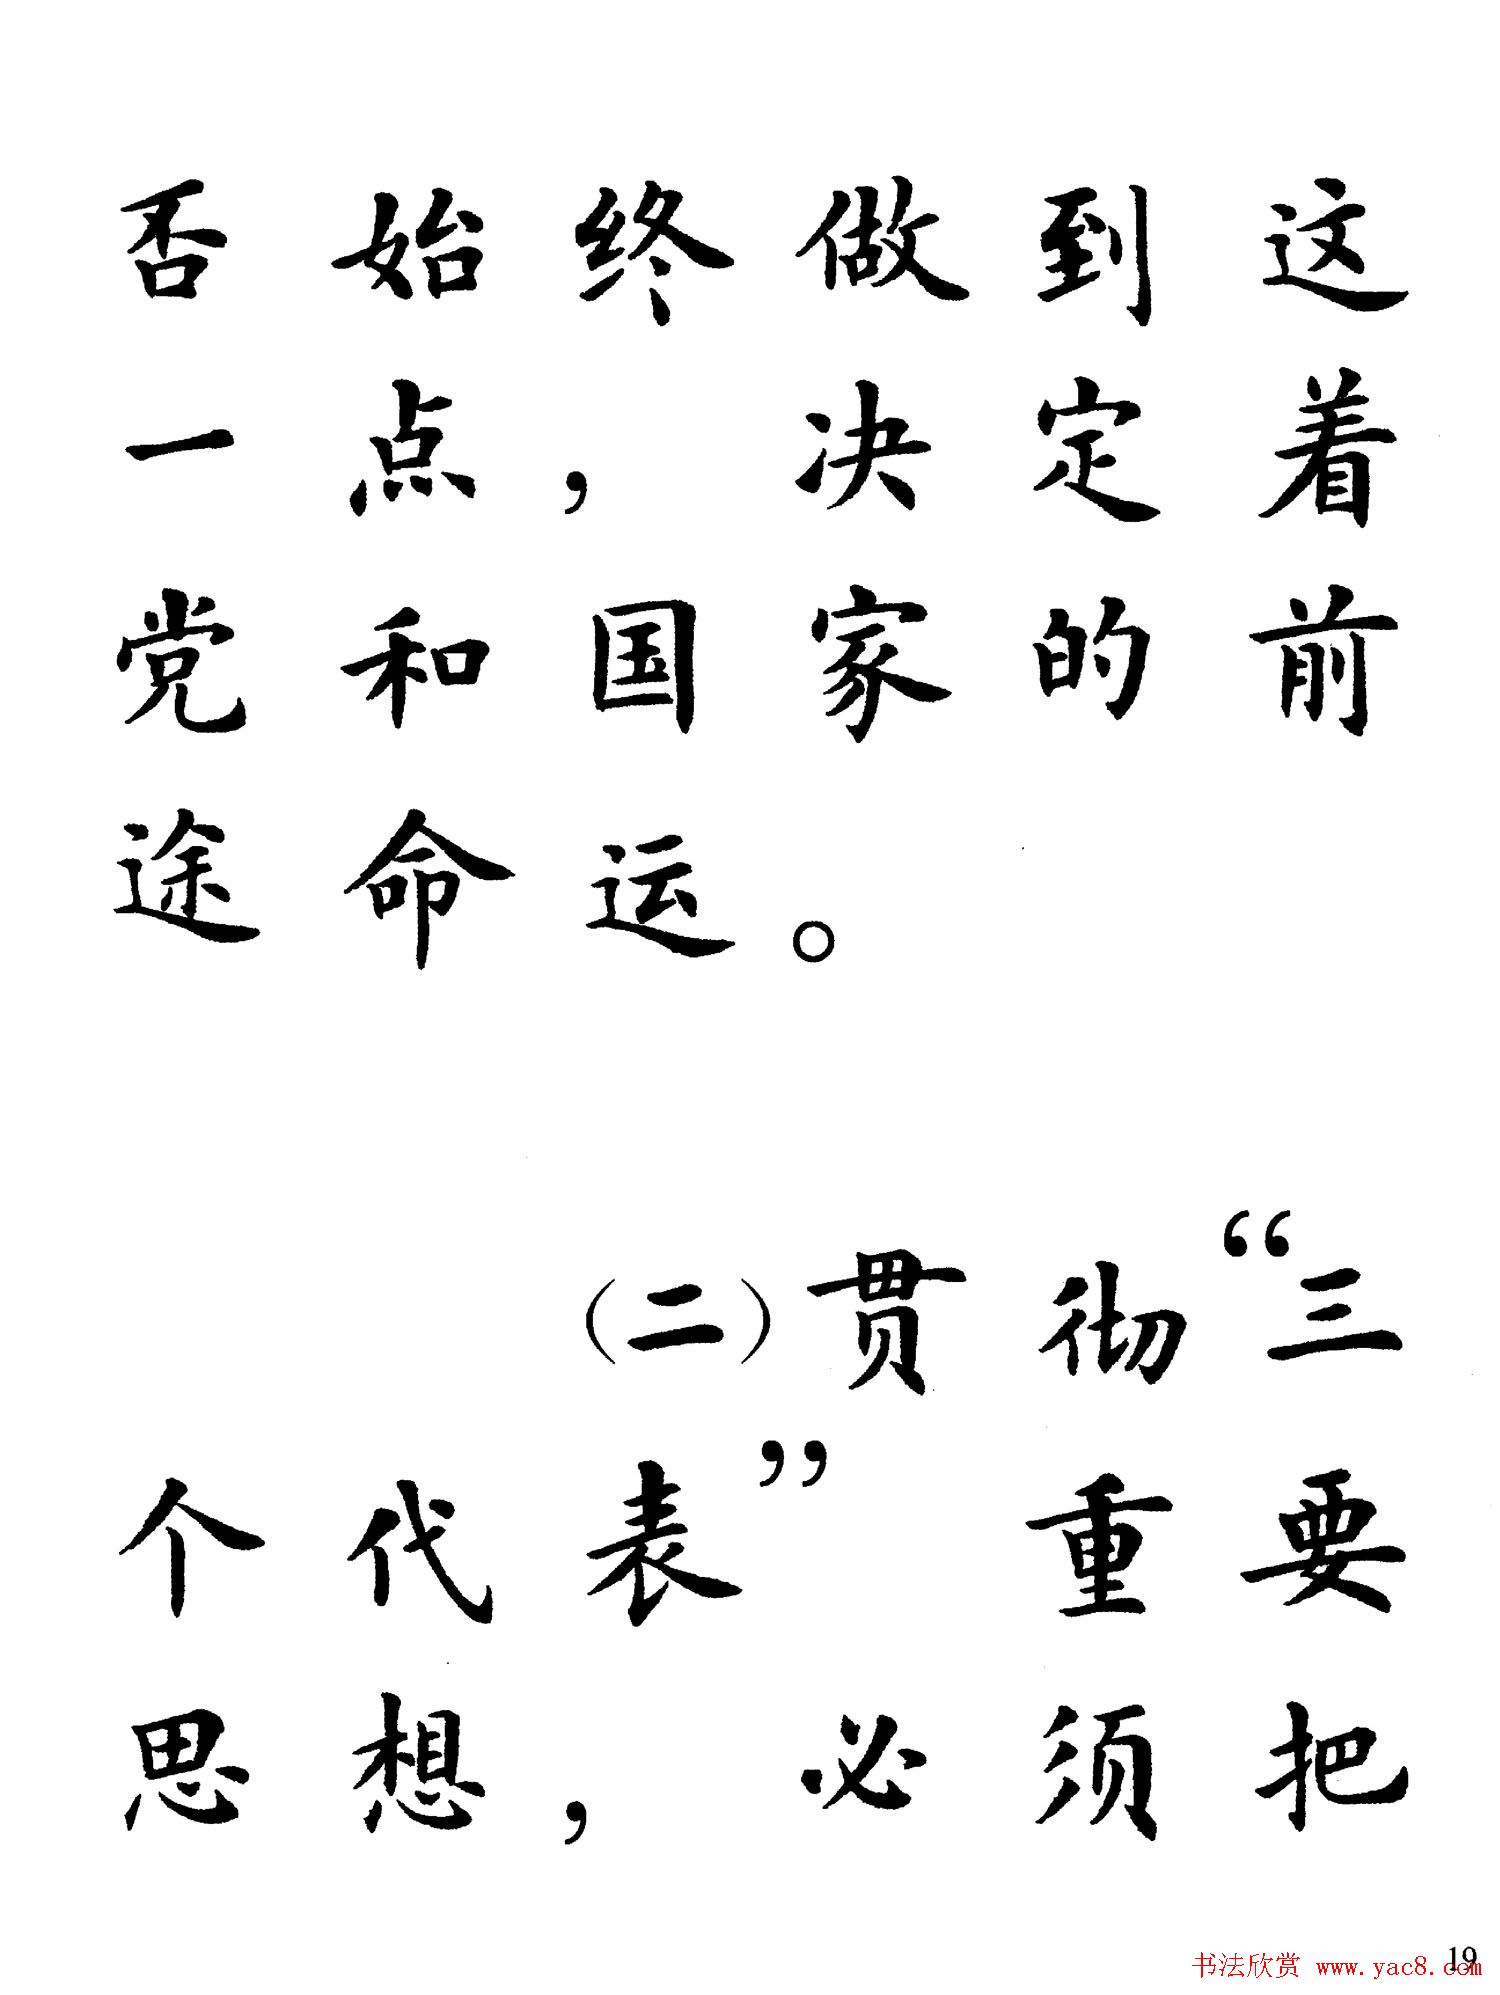 否始终做到这
一点，决定着
党和国家的前
途命运。
（二）贯彻“三
个代表”重要
思想，必须把
19
书法欣赏 www.yac8.com